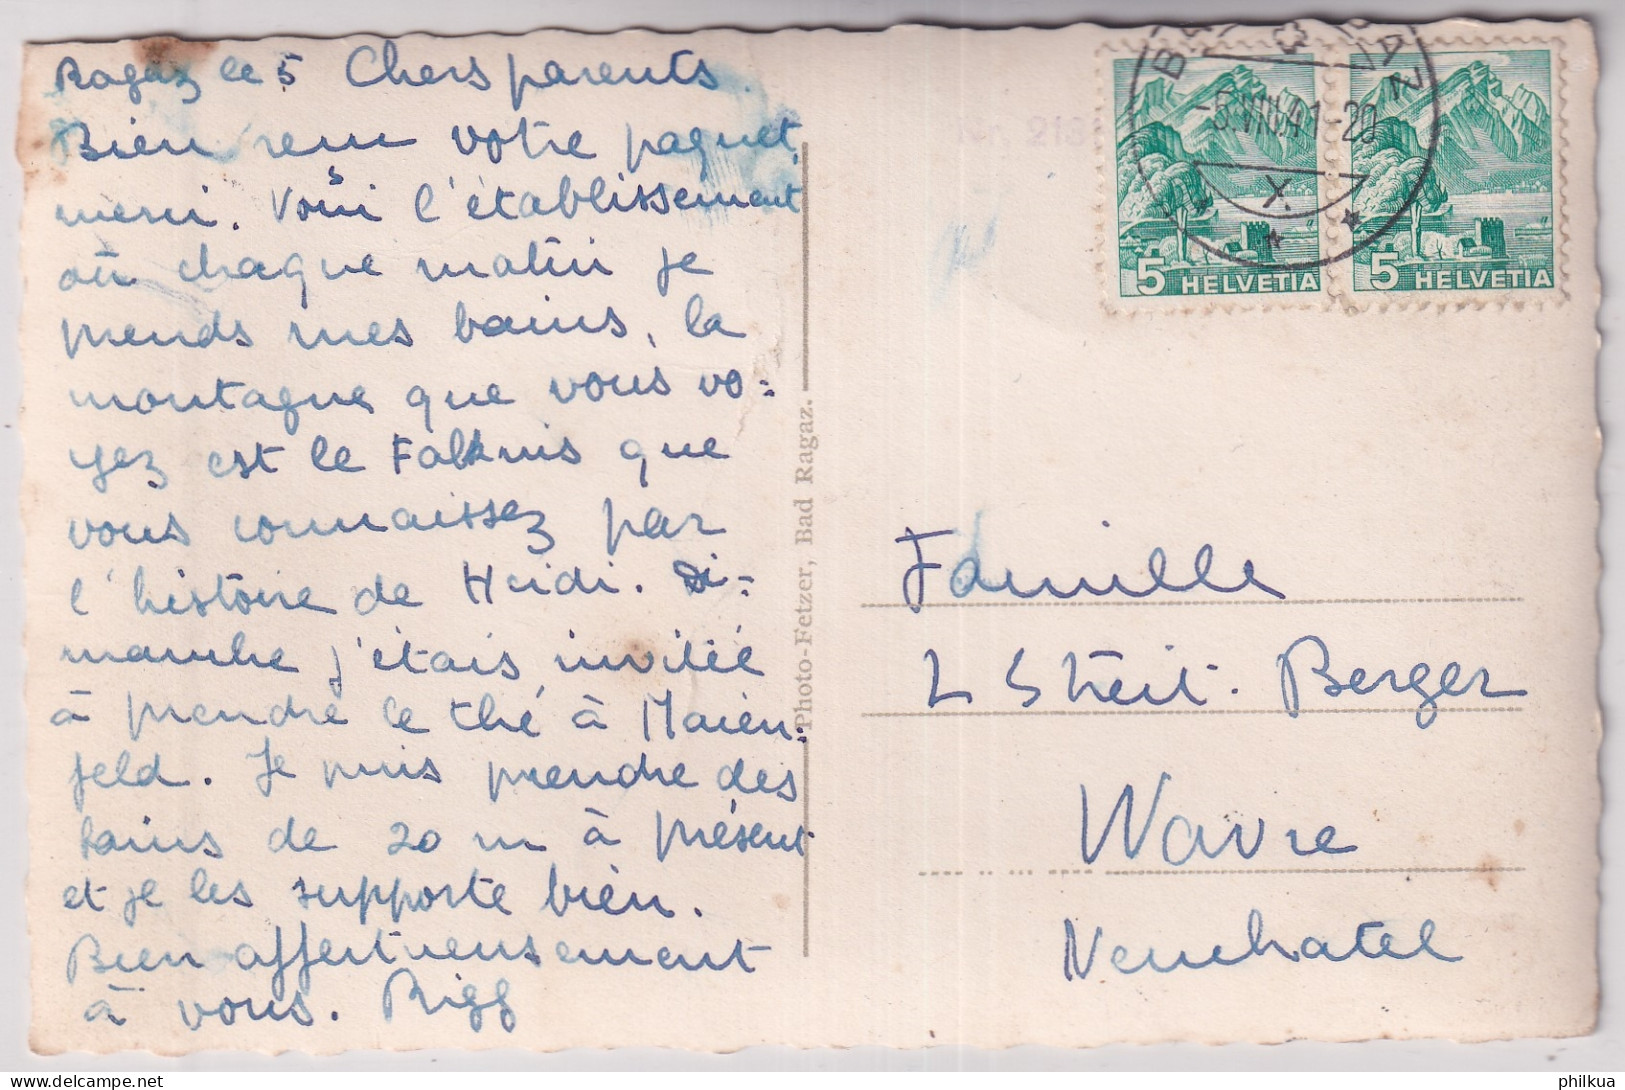 Ragaz le 5 Chers parents.
Bien reçu votre paquet,
merci. Voici l'établissement
où chaque matin je
prends mes bains, la
montagne que vous vo=
yez est le Falknis que
vous connaissez par
l'histoire de Heidi. Di=
manche j'étais invitée
à prendre le thé à Maien=
feld. Je puis prendre des
bains de 20 m à présent
et je les supporte bien.
Bien affectueusement
à vous. Rigg
Photo-Fetzer, Bad Ragaz.
218
-5.VIII.41-20
X.
5 HELVETIA
5 HELVETIA
Famille
L Stheit-Berger
Wavre
Neuchatel
philkua
delcampe.net